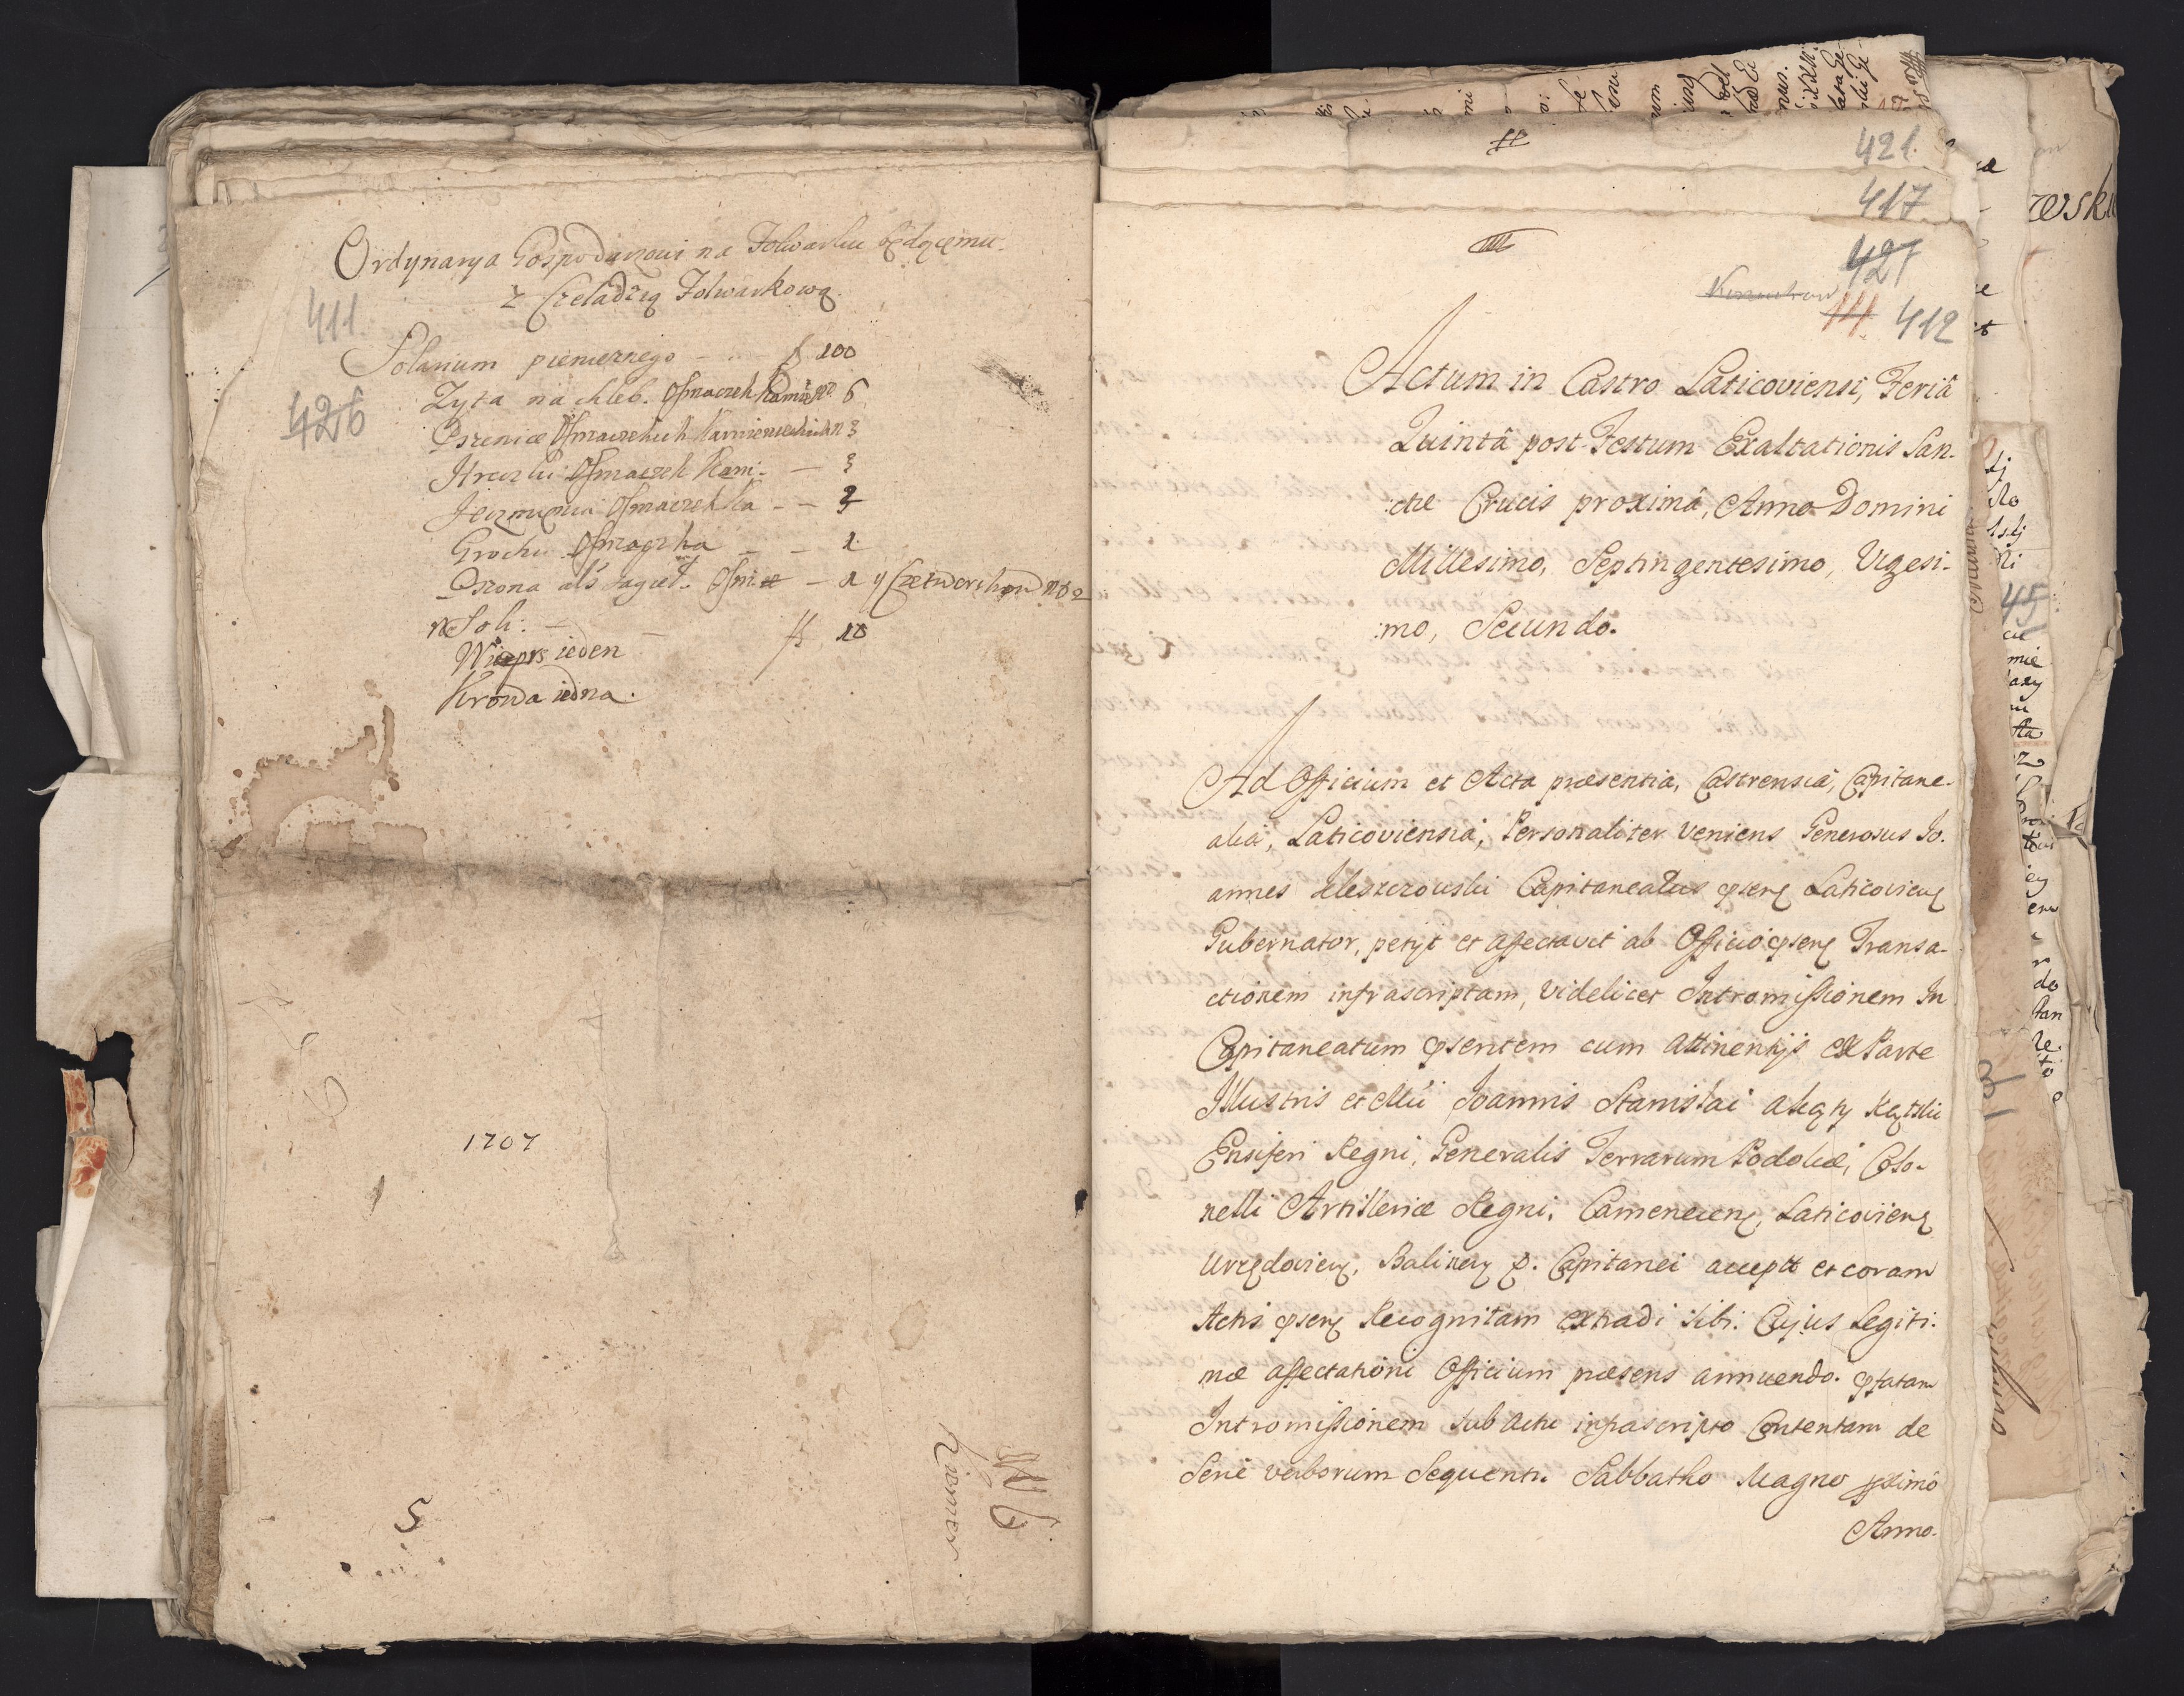 Ordynarya Gospodarzowi na Folwarku będącemu
z Czeladzią Folwarkową.
411
Solarium pieniężnego - f 100
426
Zyta na chleb. Osmaczek Kamie. No 6
Pszenice Osmaczkuch Kamienieckich n 3
Hreczki Osmaczek Kami. — 3
Jęczmienia Osmaczek - - 2
Grochu Osmaczka - - 1
Pszona als Jagieł. Osm. — 1 y Czetwertkow No 2
Soli. — f 10
Wieprz ieden
Krowa iedna.
1707
5
421.
417
427
14 412
Actum in Castro Laticoviensi, Feriâ
Quintâ post Festum Exaltationis San-
:ctæ Crucis proximâ, Anno Domini
Millesimo, Septingentesimo, Vigesi-
:mo, Secundo.
Ad Officium et Acta præsentia, Castrensia, Capitane-
alia, Laticoviensia, Personaliter Veniens Generosus Jo.
annes Capitaneatus psens Laticoviens
Gubernator, petijt et affectavit ab Officio psens Transa-
ctionem infrascriptam, Videlicet Intromissionem In
Capitaneatum psentem cum attinentijs ex Parte
Illustris et Mci Joannis Stanislai a Kąty Kątski
Ensiferi Regni, Generalis Terrarum Podoliæ, Colo-
nelli Artilleriæ Regni, Camenecens, Laticoviens
Urzędoviens, Balinens p. Capitanei accept et coram
Actis psens Recognitam extradi sibi. Cujus Legiti:
mæ affectationi Officium præsens annuendo. pfatam
Intromissionem sub actu infrascripto Contentam de
Serie verborum Sequenti. Sabbatho Magno pximo
Anno.